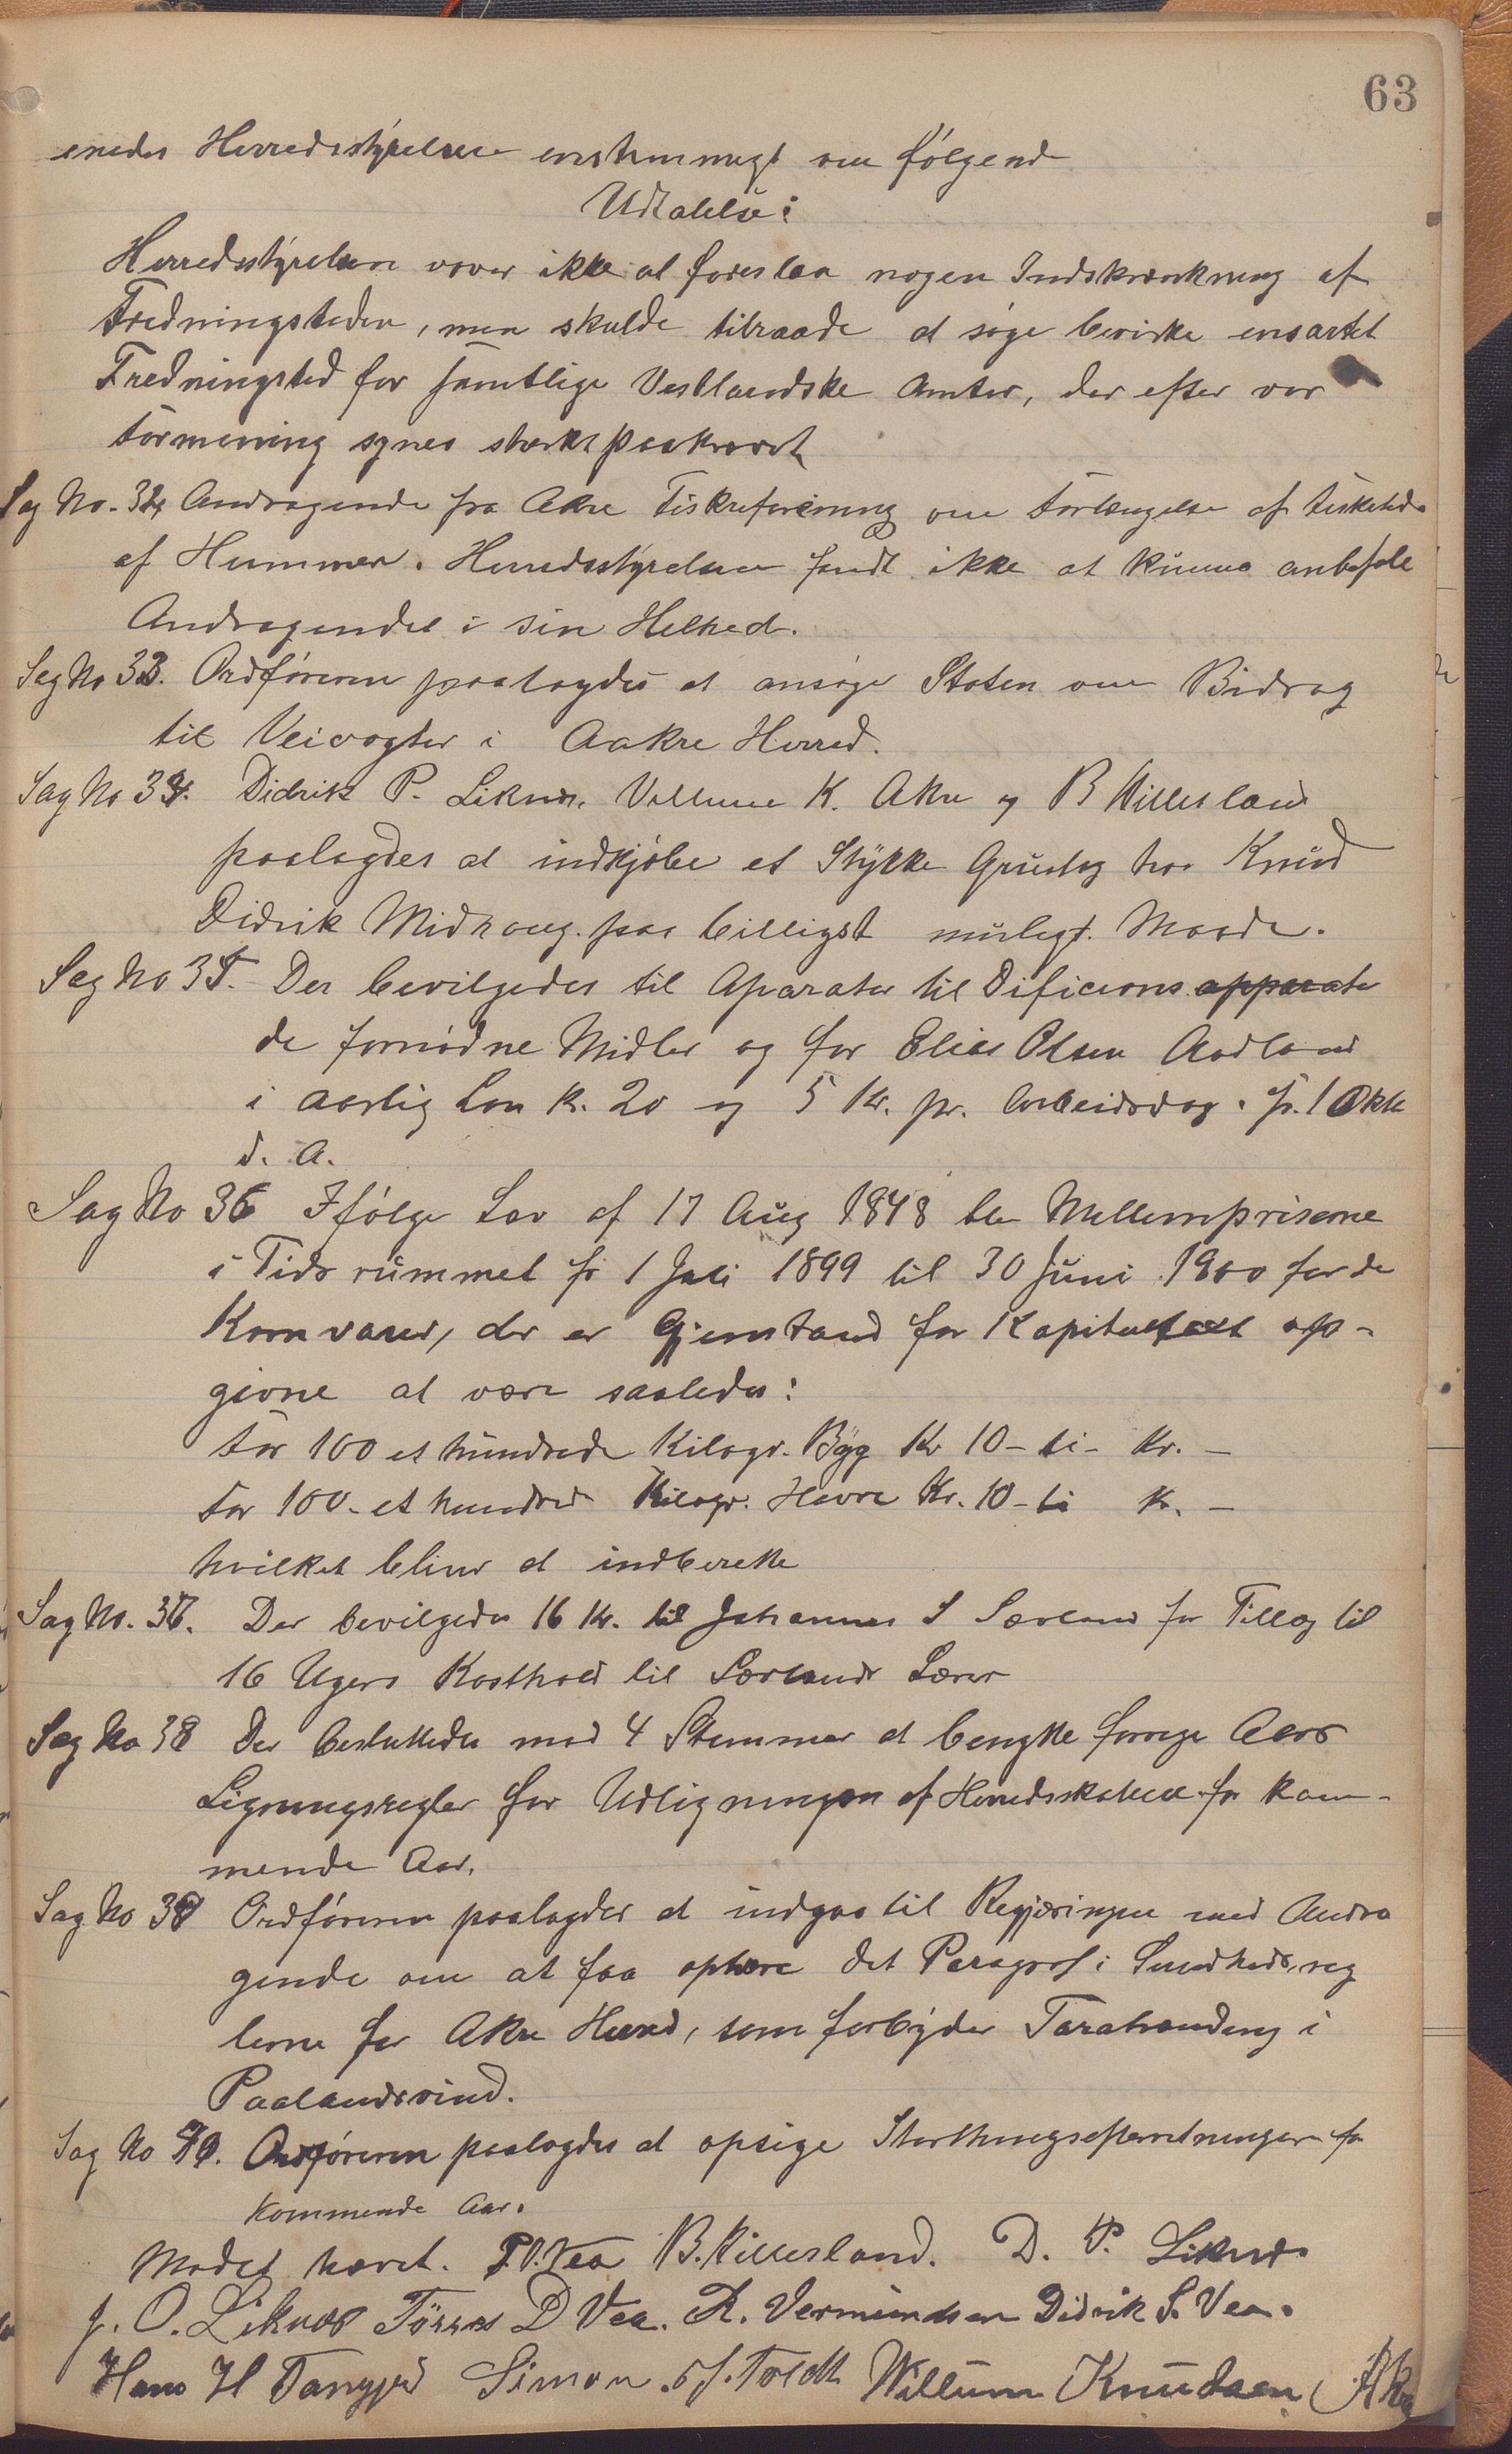 63
enedes Herredsstyrelsen enstemmigt om følgende
Udtalelse:
Herredsstyrelsen vover ikke at foreslaa nogen Indskrænkning af
Fredningstiden, men skulde tilraade at søge bevirke ensartet
Fredningstid for samtlige Vestlandske Amter, der efter vor
Formening synes stærkt paakrævet
Sag No. 32, Andragende fra Akre Fiskeforening om Forlængelse af Fisketid
af Hummer. Herredsstyrelsen fandt ikke at kunne anbefale
Andragendet i sin Helhed.
Sag No 33. Ordføreren paalagdes at ansøge Staten om Bidrag
til Veivogter i Aakre Herred.
Sag No 34. Didrik P. Liknes, Villum K. Akre og B Hillesland
paalagdes at indkjøbe et Stykke Grustag hos Knud
Didrik Midhaug paa billigst muligt Maade.
Sag No 35. Der bevilgedes til Aparater til Dificions apparater
de fornødne Midler og for Elias Olsen Aadland
i aarlig Løn Kr. 20 og 5 Kr. pr. Arbeidsdag. fr. 1 Okt
d. A.
Sag No 36 Ifølge Lov af 17 Aug 1848 blev Mellempriserne
i Tidsrummet fr 1 Juli 1899 til 30 Juni 1900 for de
Kornvarer, der er Gjenstand for Kapiteltaxt op-
givne at være saaledes:
For 100 et hundrede Kilogr. Byg Kr 10 - ti - Kr. -
For 100 - et hundrede Kilogr. Havre Kr. 10 - ti Kr. -
hvilket bliver at indberette
Sag No. 37. Der bevilgedes 16 Kr. til Johannes S Sævland for Tillæg til
16 Ugers Kosthold til Sævlands Lærer
Sag No 38 Der besluttedes med 4 Stemmer at benytte forrige Aars
Ligningsregler for Udligningen af Herredsskatten for kom-
mende Aar.
Sag No 39 Ordføreren paalagdes at indgaa til Regjeringen med Andra
gende om at faa ophæve det Paragraf i Sundhedsreg
lerne for Akre Herred, som forbyder Tarebrænding i
Paalandsvind.
Sag No 40. Ordføreren paalagdes at opsige Storthingsefterretningen for
kommende Aar.
Mødet hævet. P. V. Vea B. Hillesland. D. P. Liknes
J. O. Liknes Tørres D Vea. K. Vermundsen Didrik S. Vea.
Hans H Tangjerd Simon J. Toldt Willum Knudsen Akre